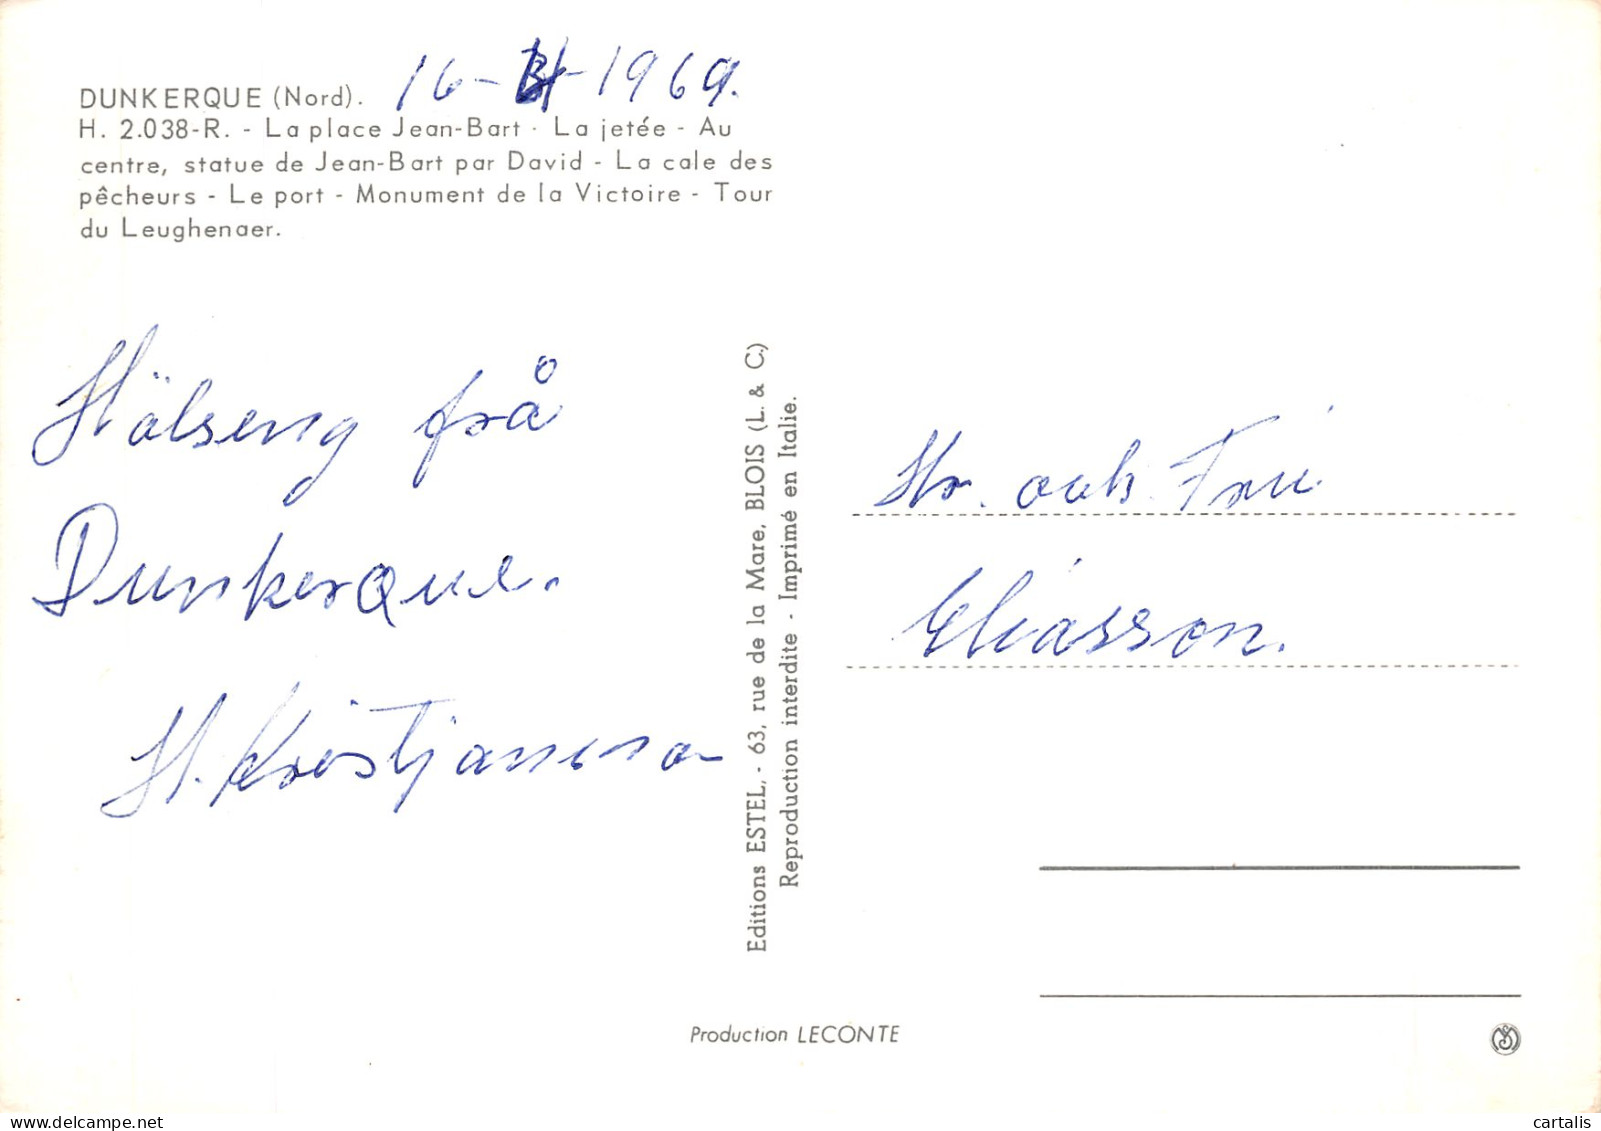 DUNKERQUE (Nord). 16 - - 1969.
H. 2.038-R. - La place Jean-Bart - La jetée - Au
centre, statue de Jean-Bart par David - La cale des
pêcheurs - Le port - Monument de la Victoire - Tour
du Leughenaer.
Hälseng från
Dunkerque.
H. Kristjansson
Editions ESTEL, - 63, rue de la Mare, BLOIS (L. & C.)
Reproduction interdite - Imprimé en Italie.
Hr. och Fru
Eliasson.
Production LECONTE
cartalis
www.delcampe.net